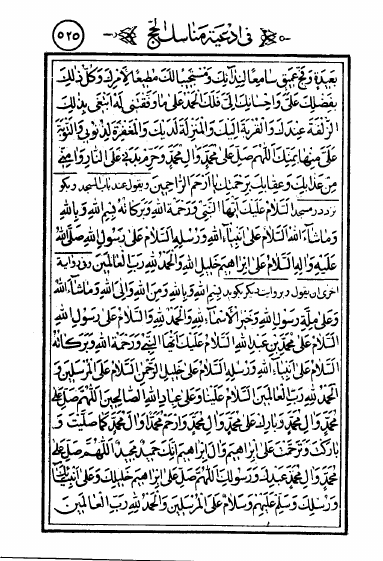 في ادعية مناسك الحج ٥٢٥
بعيدة وفج عميق سامعا لندائك ومستجيبا لك مطيعا لامرك وكل ذلك
بفضلك علي واحسانك الي فلك الحمد على ما وفقتني له ابتغي بذلك
الزلفة عندك والقربة اليك والمنزلة لديك والمغفرة لذنوبي والتوبة
علي منها بمنك اللهم صل على محمد وال محمد وحرم بدني على النار وامني
من عذابك وعقابك برحمتك يا ارحم الراحمين ويقول عند باب المسجد وبگو
نزد در مسجد السلام عليك ايها النبي ورحمة الله وبركاته بسم الله وبالله
وما شاء الله السلام على انبياء الله ورسله السلام على رسول الله صلى الله
عليه واله السلام على ابراهيم خليل الله والحمد لله رب العالمين وفي رواية
اخرى ان يقول در روايت ديگر بگويد بسم الله وبالله ومن الله والى الله وما شاء الله
وعلى ملة رسول الله وخير الاسماء لله والحمد لله والسلام على رسول الله
السلام على محمد بن عبد الله السلام عليك ايها النبي ورحمة الله وبركاته
السلام على انبياء الله ورسله السلام على خليل الرحمن السلام على المرسلين و
الحمد لله رب العالمين السلام علينا وعلى عباد الله الصالحين اللهم صل على
محمد وال محمد وبارك على محمد وال محمد وارحم محمدا وال محمد كما صليت و
باركت وترحمت على ابراهيم وال ابراهيم انك حميد مجيد اللهم صل على
محمد وال محمد عبدك ورسولك اللهم صل على ابراهيم خليلك وعلى انبيائك
ورسلك وسلم عليهم وسلام على المرسلين والحمد لله رب العالمين